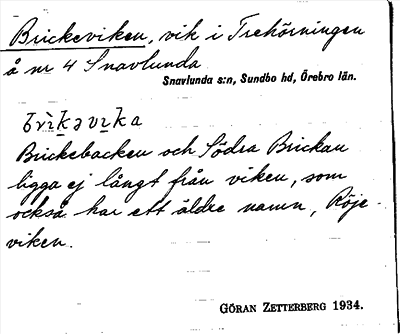 Brickeviken, vik i Trehörningen
å nr 4 Snavlunda
Snavlunda s:n, Sundbo hd, Örebro län.
brìkəvɪka
Brickebacken och Södra Brickan
ligga ej långt från viken, som
också har ett äldre namn, Röje-
viken.
GÖRAN ZETTERBERG 1934.